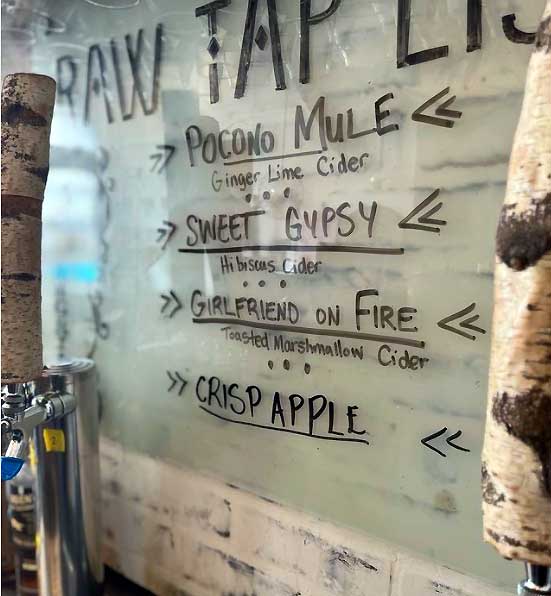 RAW TAP LIS
POCONO MULE
Ginger Lime Cider
SWEET GYPSY
Hibiscus Cider
GIRLFRIEND ON FIRE
Toasted Marshmallow Cider
CRISP APPLE
2